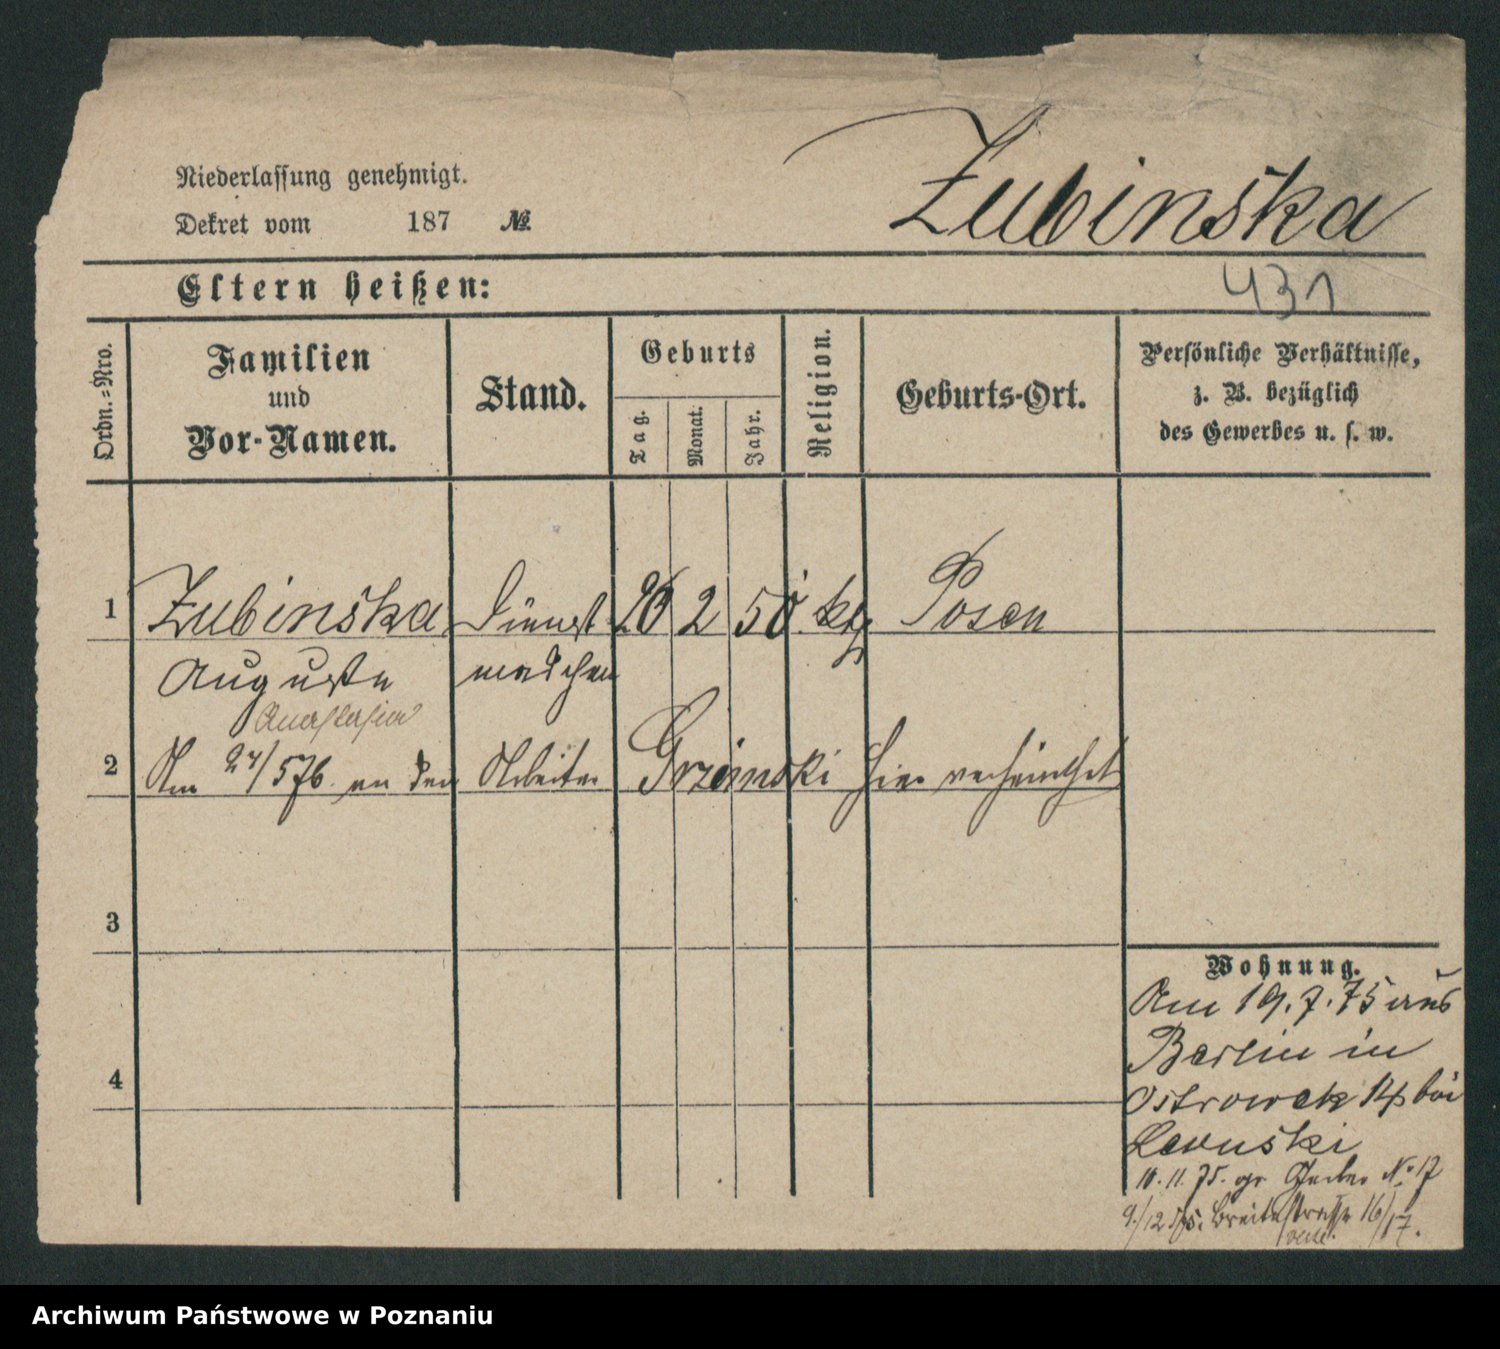 Niederlassung genehmigt.
Dekret vom 187 №
Zubinska
Eltern heißen:
431
Ordn.=Nro.
Familien
und
Vor-Namen.
Stand.
Geburts
Tag.
Monat.
Jahr.
Religion.
Geburts-Ort.
Persönliche Verhältnisse,
z. B. bezüglich
des Gewerbes u. s. w.
1 Zubinska Dienst 26 2 50 kt Posen
Auguste mädchen
Anastasia
2 Am 24/576 an den Arbeiter Grzeinski hier verheirathet
3
4
Wohnung.
Am 19.7.75 aus
Berlin in
Ostrowek 14 bei
Lewuski
10.11.75. gr Gerber No 17
9/12 75. Breitestrasse 16/17.